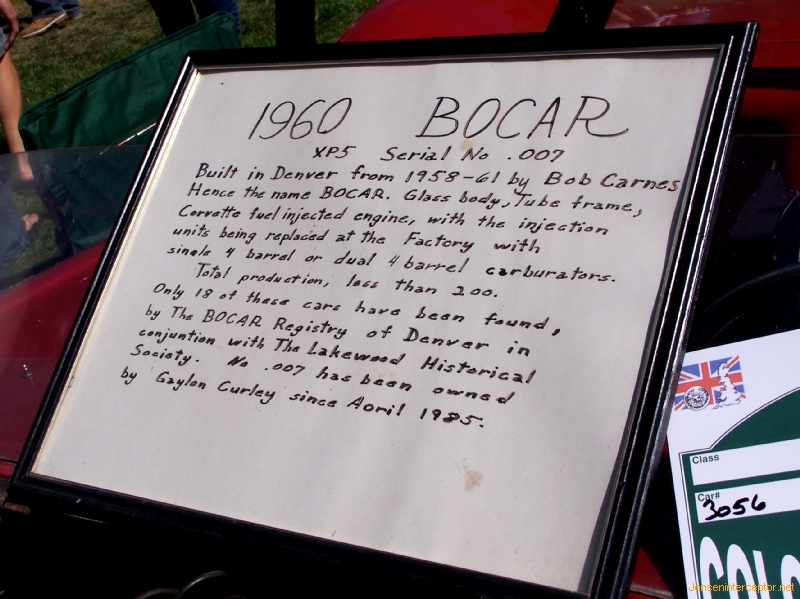 1960 BOCAR
XP5 Serial No .007
Built in Denver from 1958-61 by Bob Carnes
Hence the name BOCAR. Glass body, Tube frame,
Corvette fuel injected engine, with the injection
units being replaced at the Factory with
single 4 barrel or dual 4 barrel carburators.
Total production, less than 200.
Only 18 of these cars have been found,
by The BOCAR Registry of Denver in
conjuntion with The Lakewood Historical
Society. No .007 has been owned
by Gaylon Curley since April 1985.
Class
Car#
3056
Jenseninterceptor.net